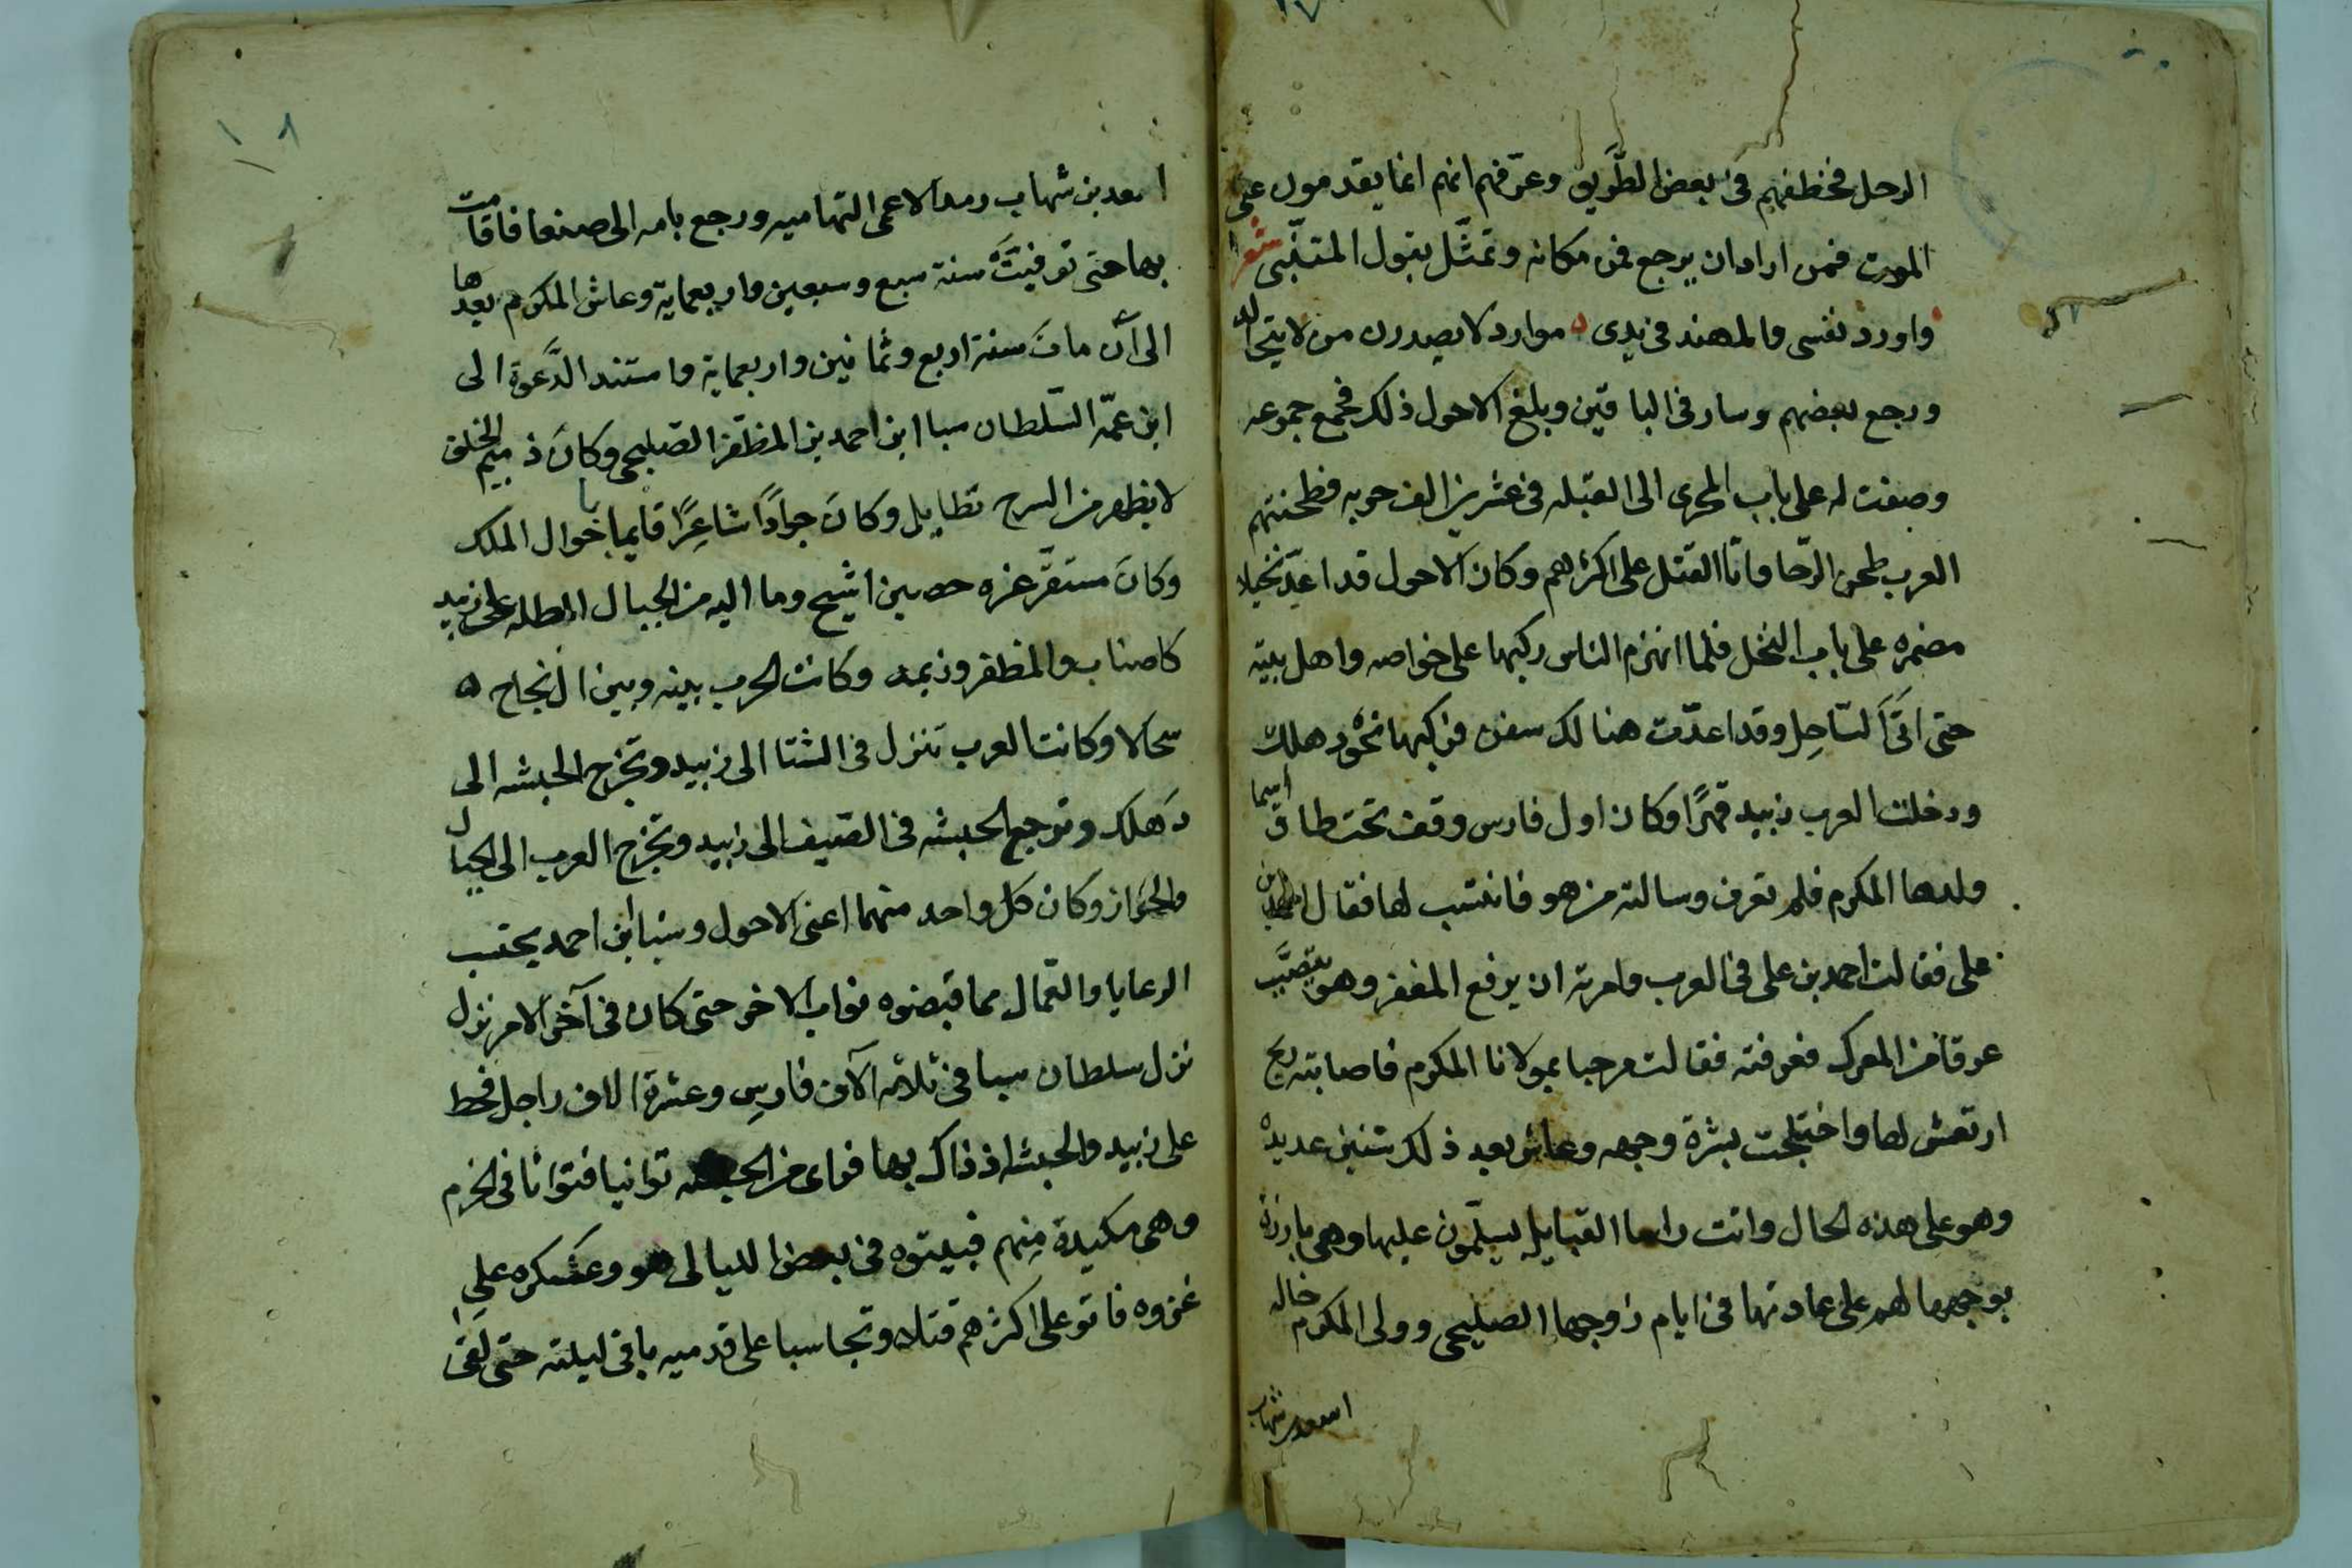 الرحل فخطفهم في بعض الطريق وعرّفهم انهم انما يقدمون على
الموت فمن اراد ان يرجع فمن مكانه وتمثّل بقول المتنبّي شعر
واورد نفسي والمهند في يدي موارد لا يصدرن من لا يجالد
ورجع بعضهم وسار في الباقين وبلغ الاحول ذلك فجمع جموعه
وصفت له على باب المجرى الى القبله في عشرين الف حربه فطحنتهم
العرب طحن الرّحا واتا القتل على اكثرهم وكان الاحول قد اعدّ خيلا
مضمره على باب النخل فلما انهزم الناس ركبها على خواصه واهل بيته
حتى اتى السّاحل وقد اعدّت هنالك سفن فركبها نحو دهلك
ودخلت العرب زبيد قهرًا وكان اول فارس وقف تحت طاق اسما
ولدها المكرم فلم تعرف وسالته من هو فانتسب لها فقال احمد بن
على فقالت احمد بن على في العرب وامرته ان يرفع المغفر وهو يتصبّب
عرقا من المعرك فعرفته فقالت مرحبا بمولانا المكرم فاصابته ريح
ارتعش لها واختلجت بشرة وجهه وعاش بعد ذلك سنين عديده
وهو على هذه الحال واتت القبايل يسلّمون عليها وهي بارزة
بوجهها لهم على عادتها في ايام زوجها الصليحى وولى المكرم خاله
اسعد بن شهاب
١٨
اسعد بن شهاب الاعمى التهاميه ورجع بامه الى صنعا فاقامت
بها حتى توفيتّ سنة سبع وسبعين واربعماية وعاش المكرم بعدها
الى أن مات سنة اربع وثمانين واربعماية واستند الدّعوة الى
ابن عمّه السّلطان سبا ابن احمد بن المظفّر الصّليحى وكان ذميم الخلق
لا يظهر من السرج بطايل وكان جوادًا شاعرًا قايما باحوال الملك
وكان مستقرّ عزه حصين اشيح وما اليه من الجبال المطله على زبيد
كاصناب والمظفر وزيمه وكانت الحرب بينه وبين ال نجاح ه
سجالا وكانت العرب تنزل في الشتا الى زبيد وتخرج الحبشه الى
دهلك وترجع الحبشه في الصّيف الى زبيد وتخرج العرب الى الجبال
والجواز وكان كل واحد منهما اعنى الاحول وسبا ابن احمد يحتسب
الرعايا والعمال مما قبضوه نواب الاخر حتى كان في آخر الامر نزل
نزل سلطان سبا في ثلاثه آلاف فارس وعشرة الاف راجل فحط
على زبيد والحبشه اذ ذاك بها فراى من الحبشه توانيا فتوانا في الحزم
وهى مكيدة منهم فبيتوه في بعض الليالى هو وعسكره على
غره فاتو على اكثرهم قتلا ونجا سبا على قدميه باقى ليلته حتى لقى